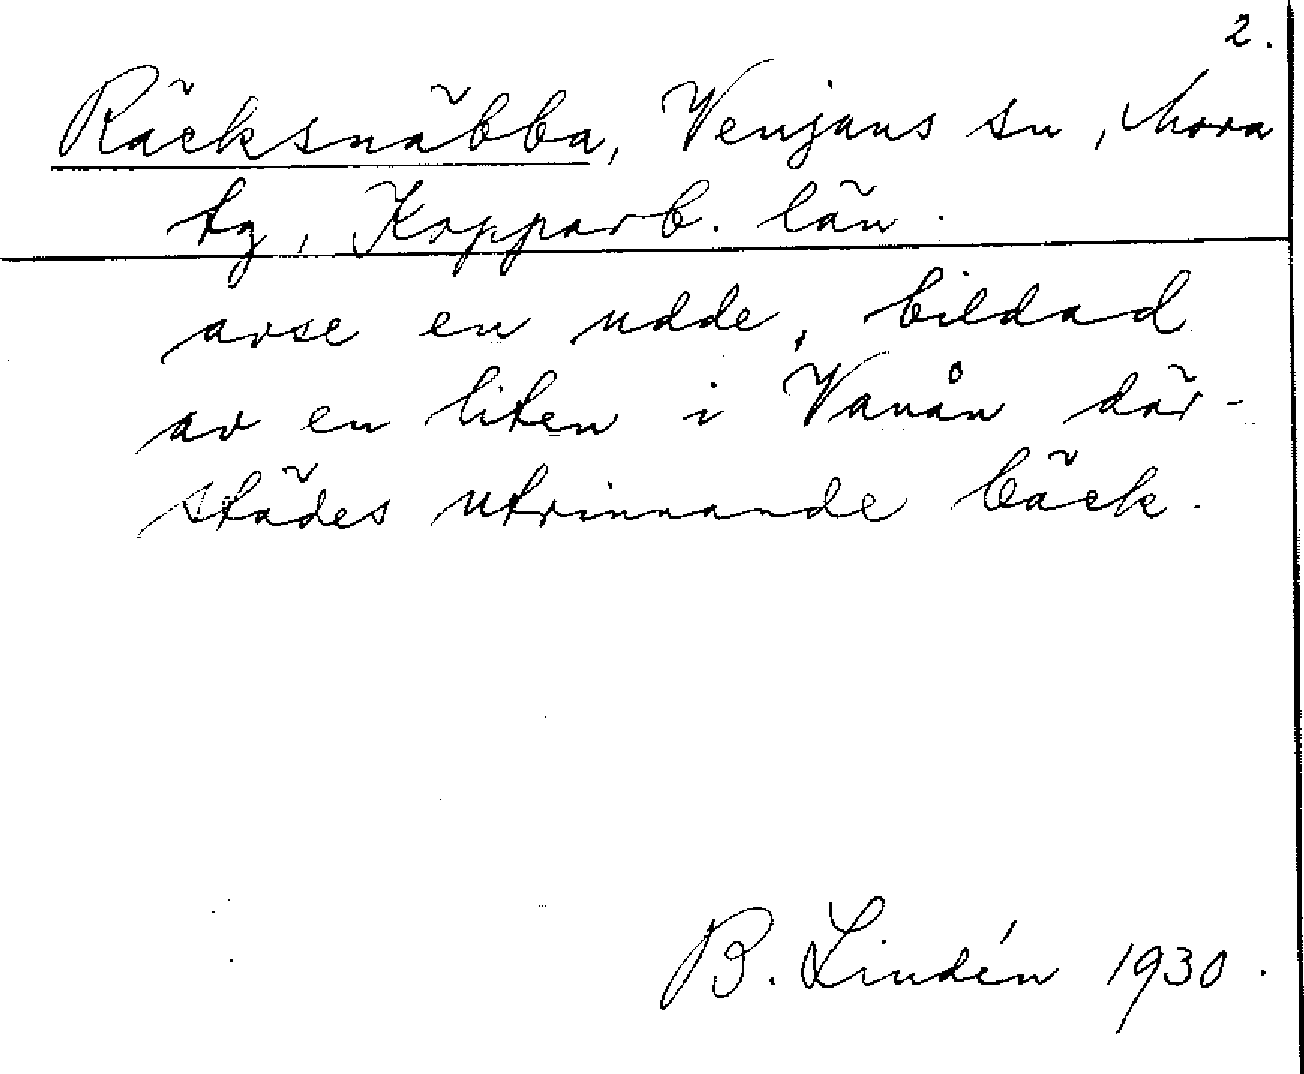 2.
Räcksnäbba, Venjans sn, Mora
tg, Kopparb. län.
avse en udde, bildad
av en liten i Vanån där-
städes utrinnande bäck.
B. Lindén 1930.